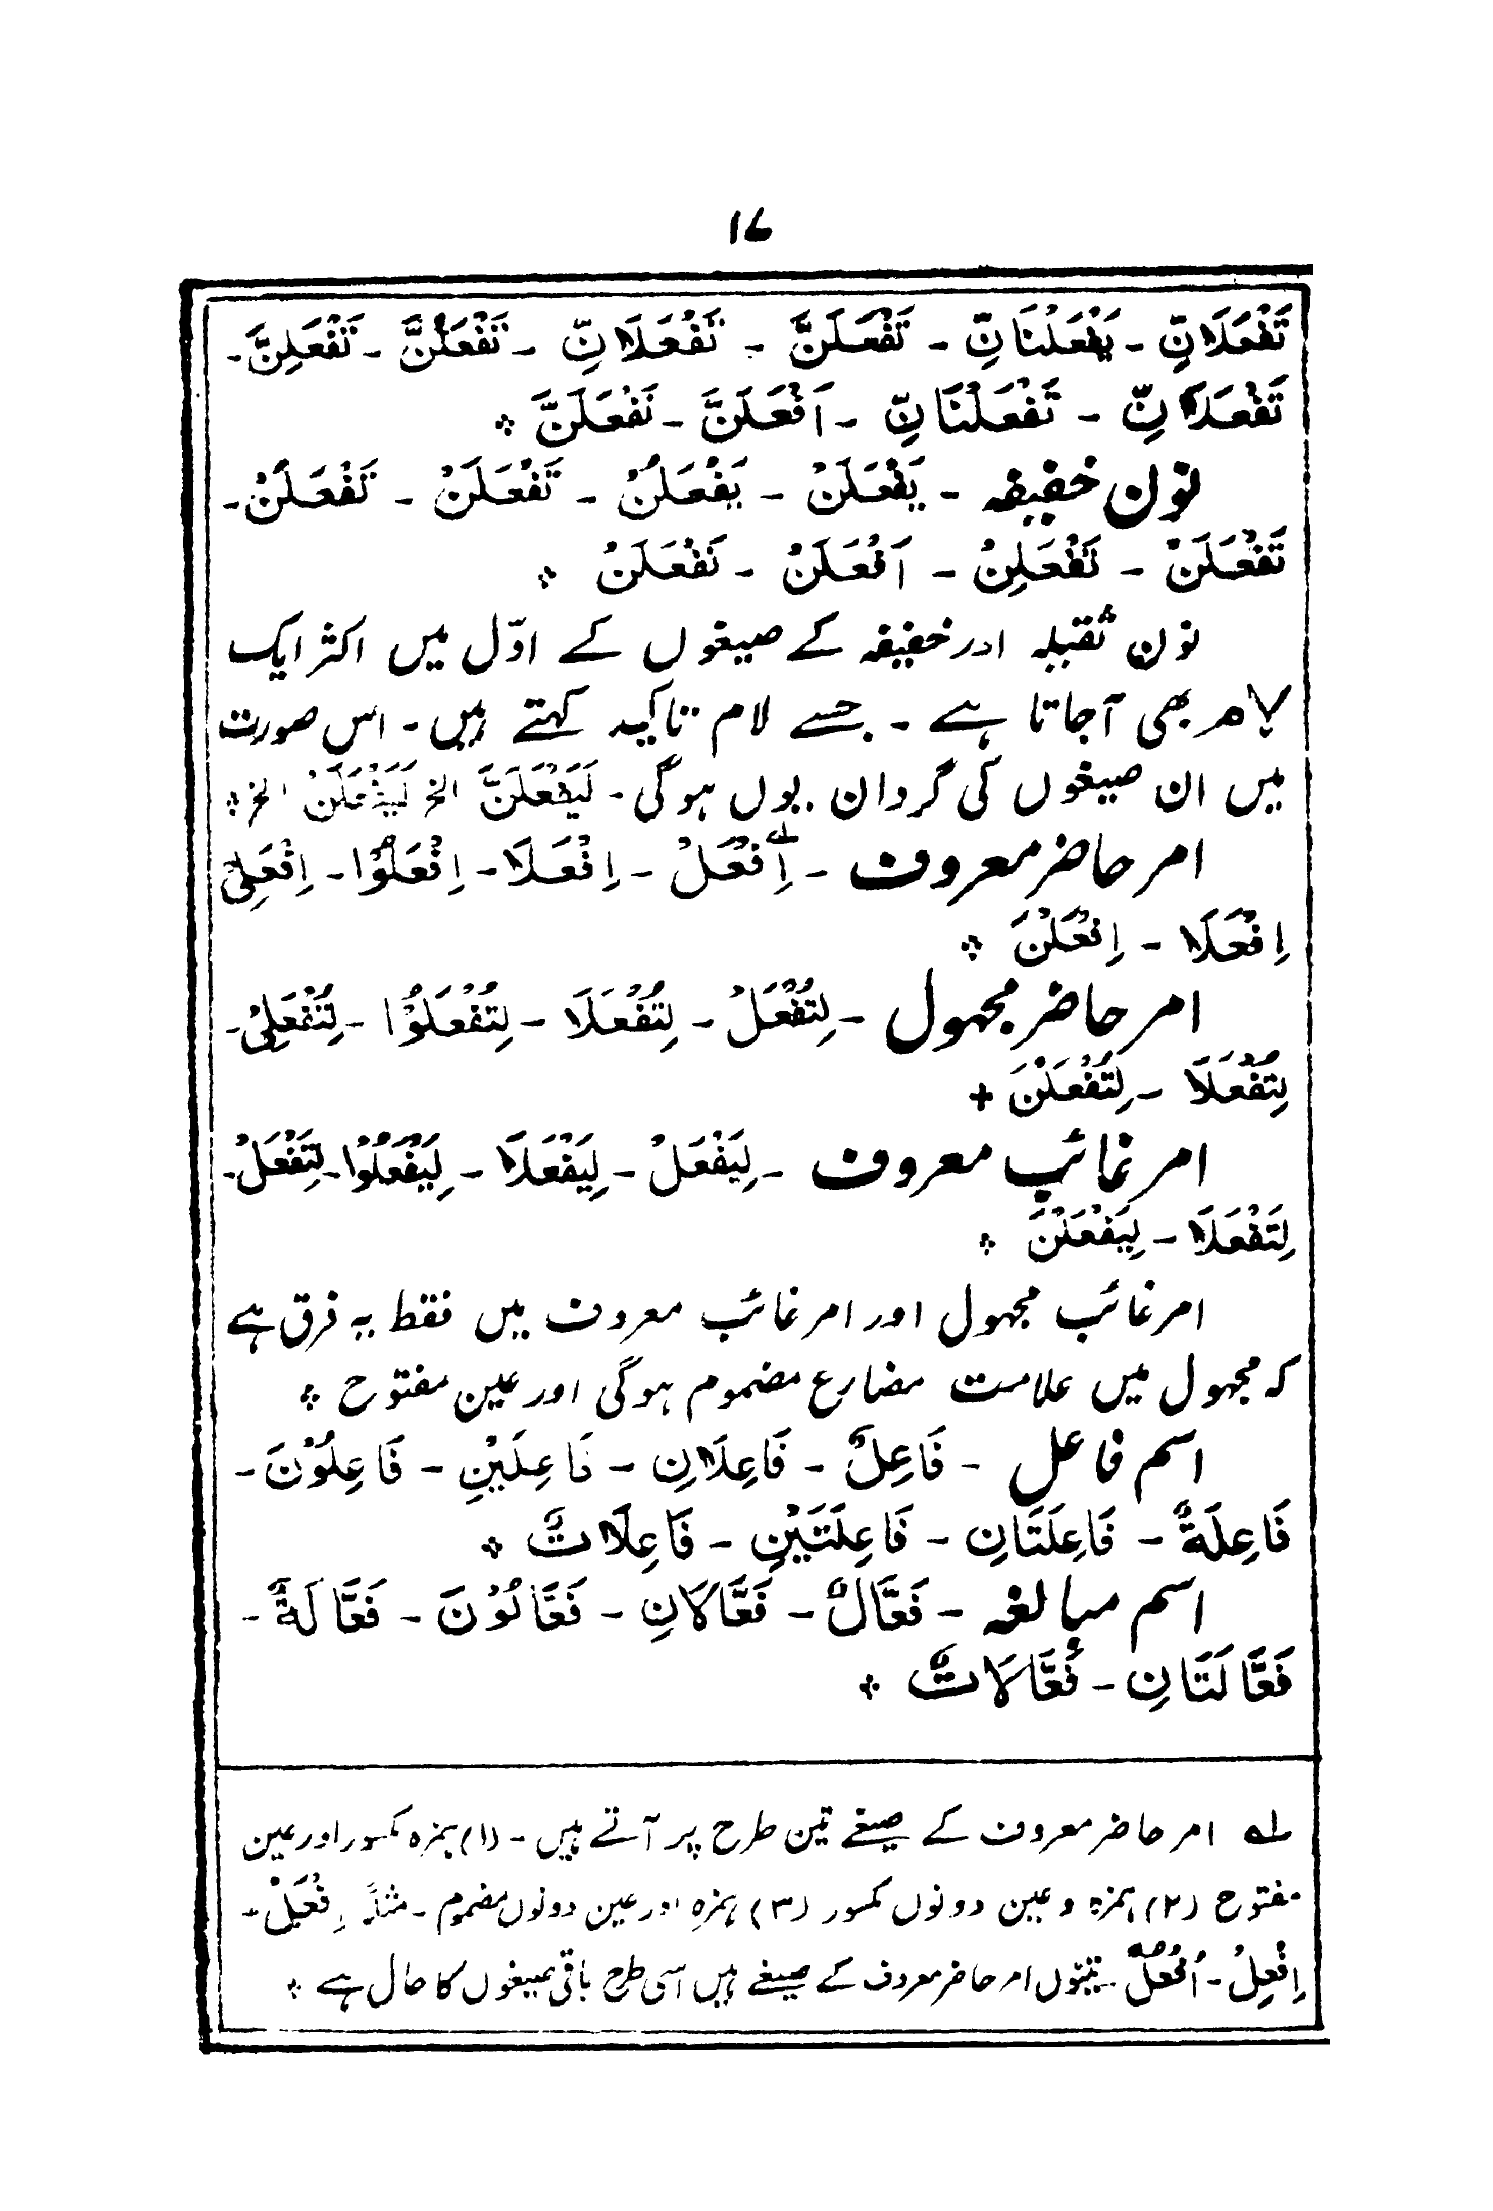 ۱۷
تَفْعَلَانِّ - يَفْعَلْنَانِّ - تَفْعَلَنَّ - تَفْعَلَانِّ - تَفْعَلُنَّ - تَفْعَلِنَّ -
تَفْعَلَانِّ - تَفْعَلْنَانِّ - اَفْعَلَنَّ - نَفْعَلَنَّ ❖
نون خفیفہ - يَفْعَلَنْ - يَفْعَلُنْ - تَفْعَلَنْ - تَفْعَلَنْ -
تَفْعَلُنْ - تَفْعَلِنْ - اَفْعَلَنْ - نَفْعَلَنْ ❖
نون ثقیلہ اور خفیفہ کے صیغوں کے اوّل میں اکثر ایک
لام بھی آجاتا ہے - جسے لام تاکید کہتے ہیں - اس صورت
میں ان صیغوں کی گردان یوں ہوگی - لَيَفْعَلَنَّ الخ لَيَفْعَلَنْ الخ ❖
امر حاضر معروف - اِفْعَلْ - اِفْعَلَا - اِفْعَلُوْا - اِفْعَلِيْ
اِفْعَلَا - اِفْعَلْنَ ❖
امر حاضر مجہول - لِتُفْعَلْ - لِتُفْعَلَا - لِتُفْعَلُوْا - لِتُفْعَلِيْ -
لِتُفْعَلَا - لِتُفْعَلْنَ +
امر غائب معروف - لِيَفْعَلْ - لِيَفْعَلَا - لِيَفْعَلُوْا - لِتَفْعَلْ -
لِتَفْعَلَا - لِيَفْعَلْنَ ❖
امر غائب مجہول اور امر غائب معروف میں فقط یہ فرق ہے
کہ مجہول میں علامت مضارع مضموم ہوگی اور عین مفتوح ❖
اسم فاعل - فَاعِلٌ - فَاعِلَانِ - فَاعِلَيْنِ - فَاعِلُوْنَ -
فَاعِلَةٌ - فَاعِلَتَانِ - فَاعِلَتَيْنِ - فَاعِلَاتٌ ❖
اسم مبالغہ - فَعَّالٌ - فَعَّالَانِ - فَعَّالُوْنَ - فَعَّالَةٌ -
فَعَّالَتَانِ - فَعَّالَاتٌ ❖
لہ امر حاضر معروف کے صیغے تین طرح پر آتے ہیں - (۱) ہمزہ مکسور اور عین
مفتوح (۲) ہمزہ و عین دونوں مکسور (۳) ہمزہ اور عین دونوں مضموم - مثلاً اِفْعَلْ -
اِفْعِلْ - اُفْعُلْ - تینوں امر حاضر معروف کے صیغے ہیں اسی طرح باقی صیغوں کا حال ہے ❖